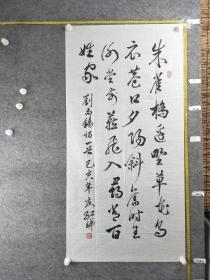 朱雀橋邊野草花烏
衣巷口夕陽斜舊時王
謝堂前燕飛入尋常百
姓家
劉禹錫詩 己亥年